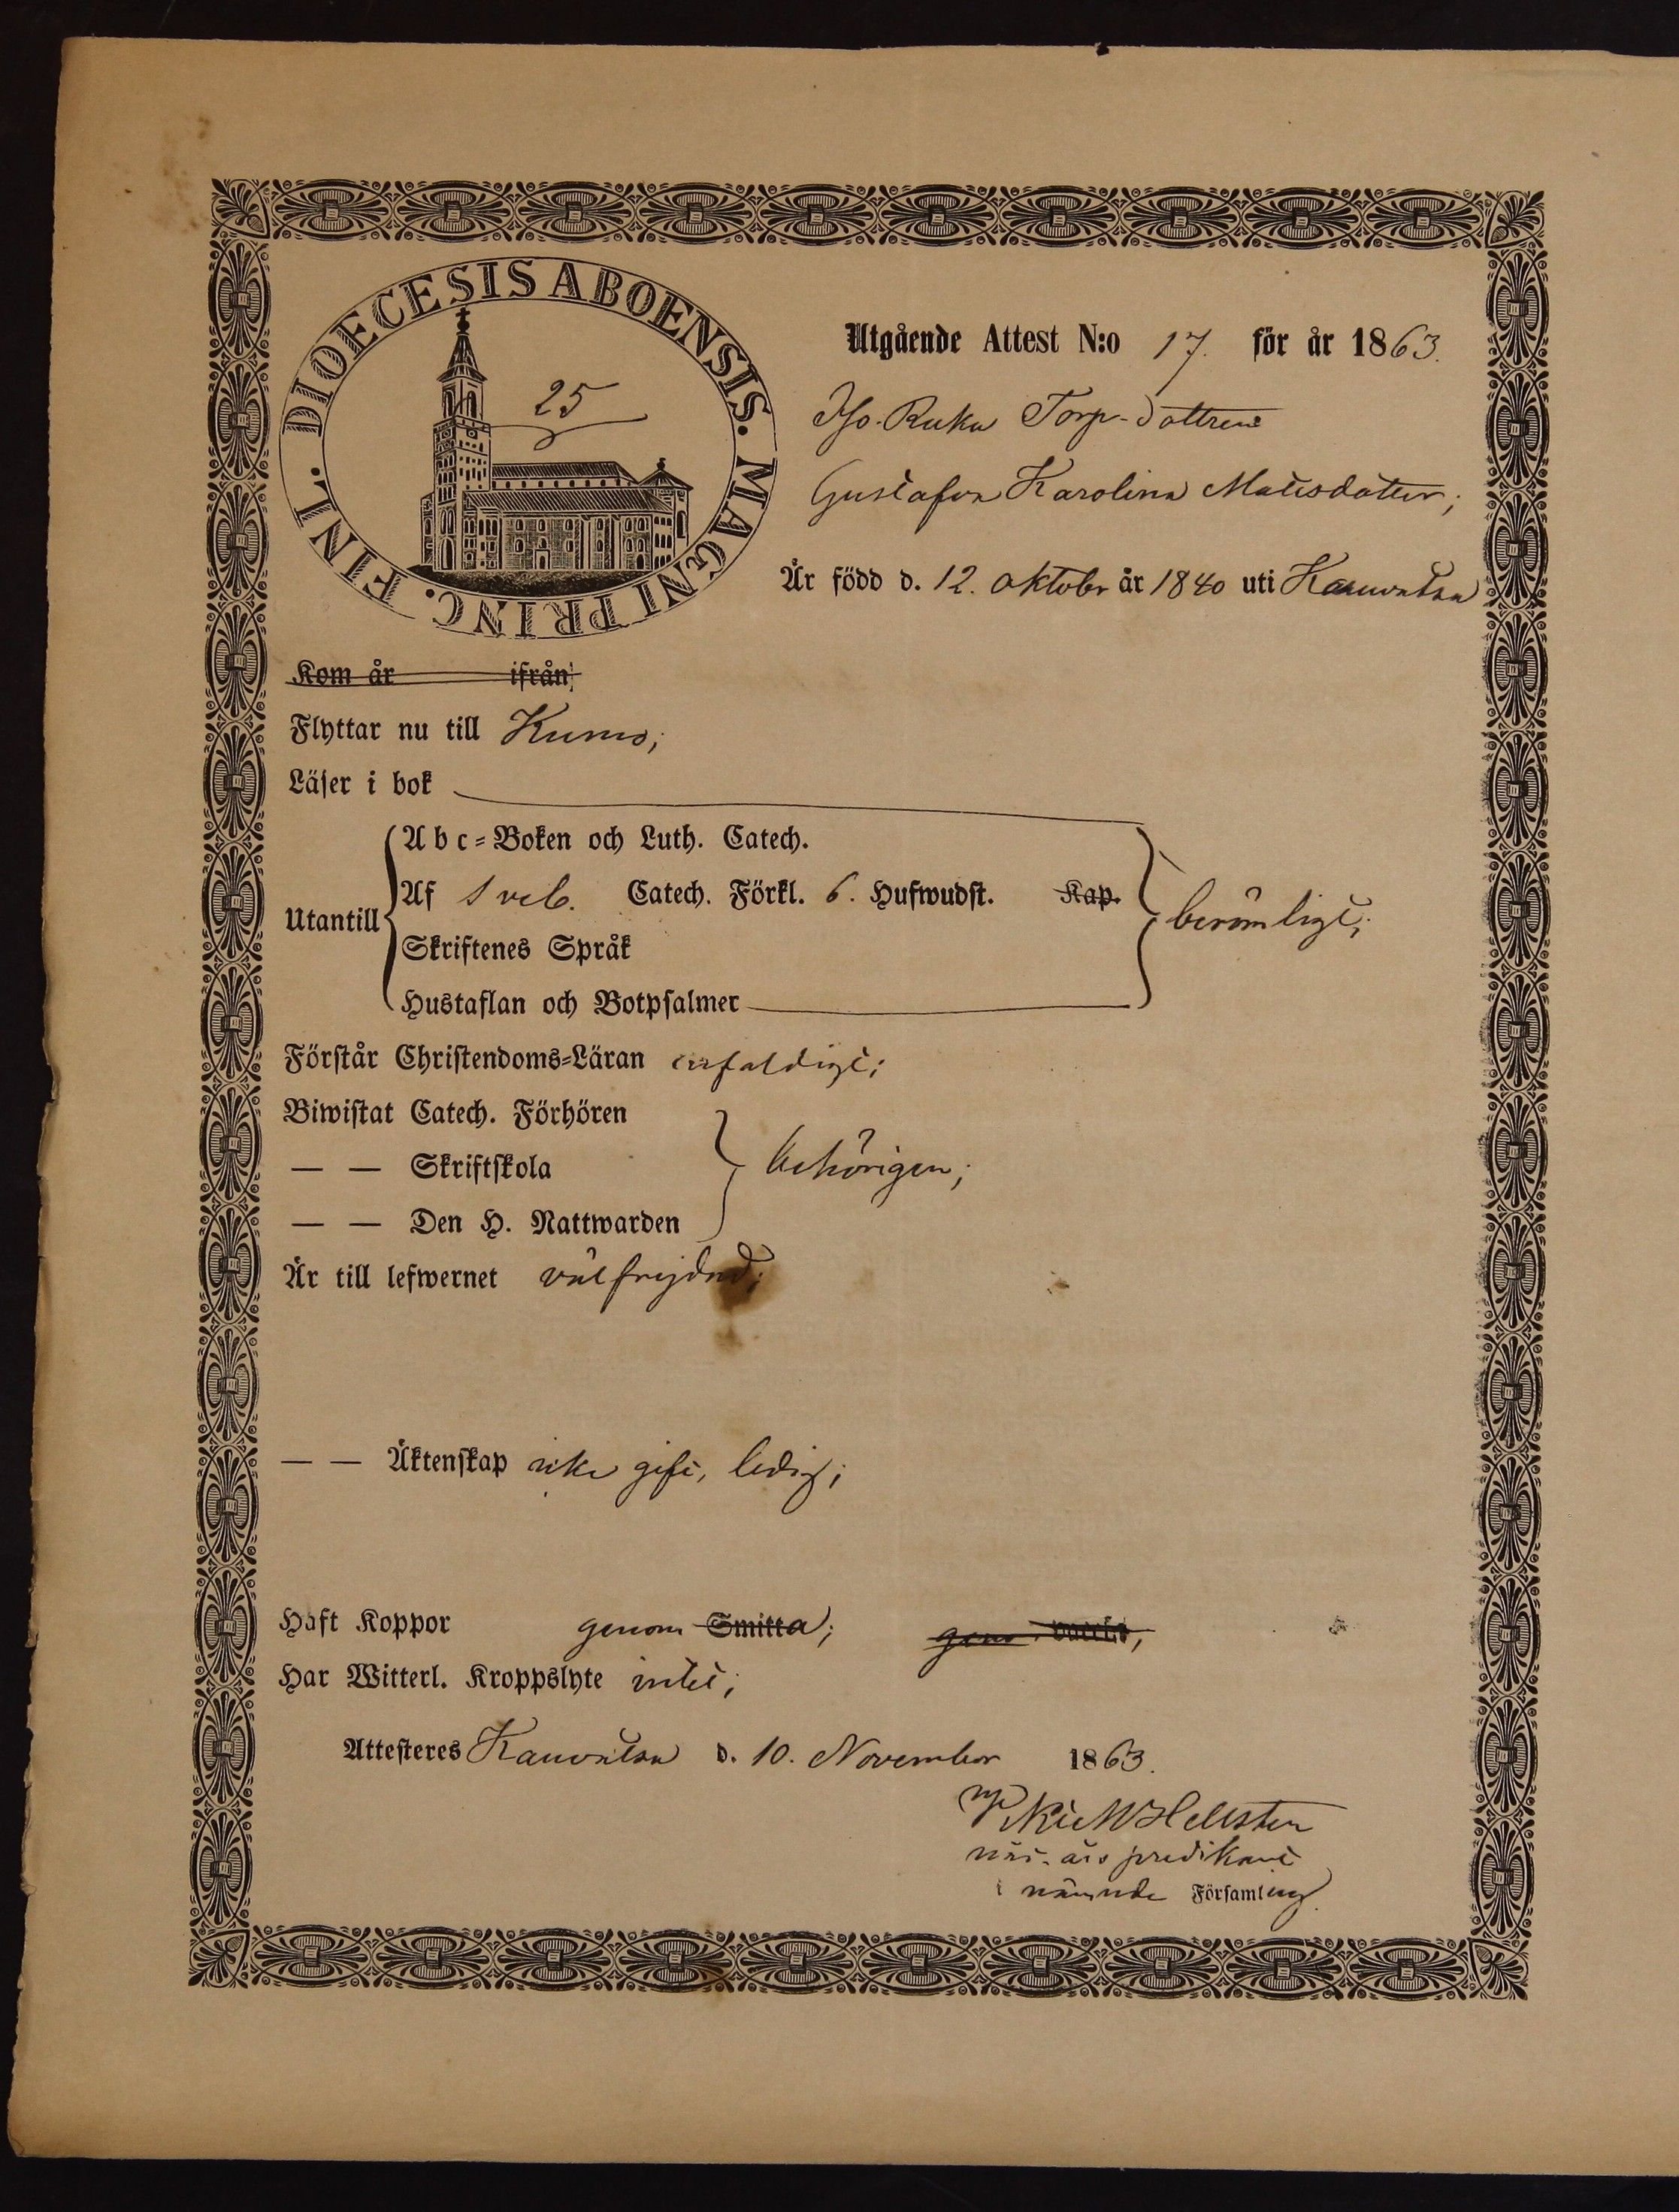 DIOECESIS ABOENSIS. MAGNI PRINC. FINL.
25
Utgående Attest N:o 17. för år 1863.
Iso-Ruka Torp-dottren
Gustafva Karolina Matisdotter;
Är född d. 12. oktober år 1840 uti Kauvatsa
Kom år ifrån
Flyttar nu till Kumo;
Läser i bok
Abc-Boken och Luth. Catech.
Utantill
Af Sveb. Catech. Förkl. 6. Hufwudst. Kap. berömligt;
Skriftenes Språk
Hustaflan och Botpsalmer
Förstår Christendoms-Läran enfaldigt;
Biwistat Catech. Förhören
— — Skriftskola behörigen;
— — Den H. Nattwarden
Är till lefwernet välfrejdad;
— — Äktenskap icke gift, ledig;
Haft Koppor genom Smitta;
Har Witterl. Kroppslyte intet;
Attesteres Kauvatsa d. 10. November 1863.
Hellsten
predikant
i nämnde Församling.